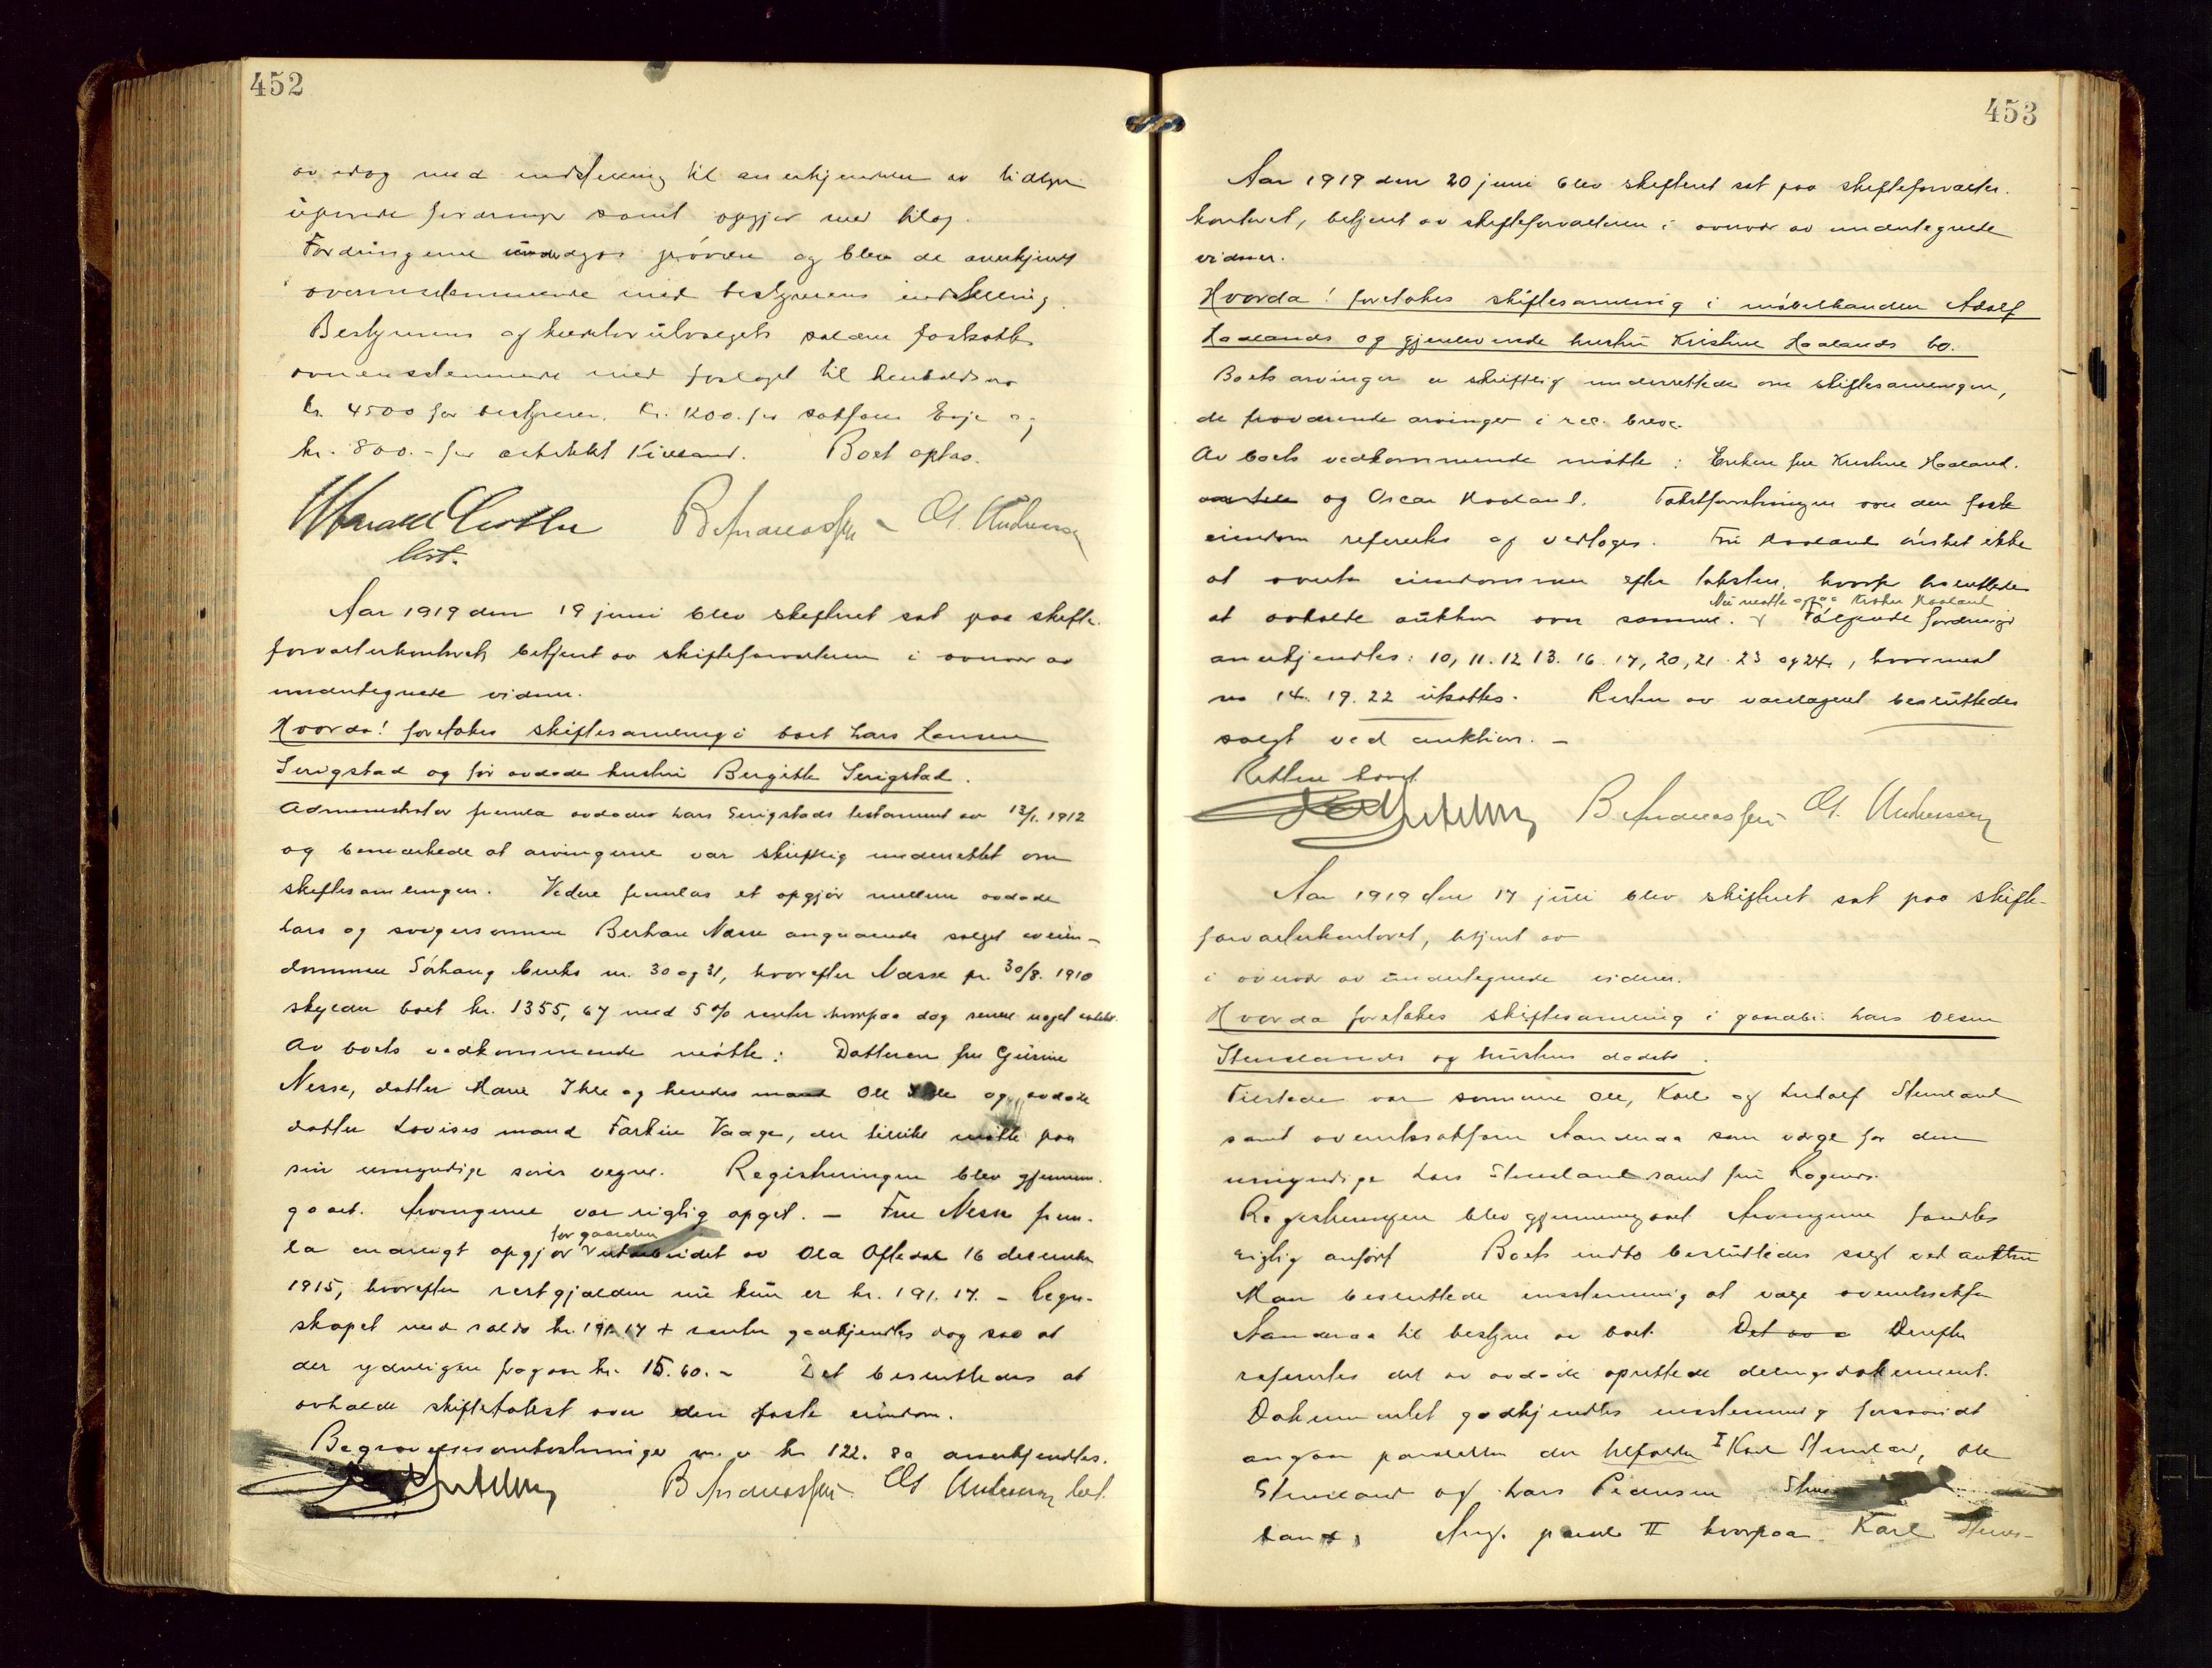 452
av idag med indstilling til anerkjendelse av tidligere
uprøvede fordringer samt opgjør med bilag.
Fordringerne undergos prøvelse og blev de anerkjendt
overensstemmende med bestyrerens indstilling.
Bestyrerens og kreditorutvalgets salærer fastsattes
overensstemmende med forslaget til henholdsvis
kr. 4500 for bestyreren. kr. 1200. for sakfører Erje og
kr. 800.- for arkitekt Kielland. Boet optas.
B. Andreassen G. Andersen
Aar 1919 den 19 juni blev skifteret sat paa skifte-
forvalterkontoret, betjent av skifteforvalteren i overvær av
undertegnede vidner.
Hvorda! foretokes skiftesamling i boet Lars Hansen
Serigstad og før avdøde hustru Birgitte Serigstad.
Administrator fremla avdøde Lars Serigstads testament av 13/1. 1912
og bemærkede at arvingerne var skriftlig underrettet om
skiftesamlingen. Videre fremlas et opgjør mellem avdøde
Lars og svigersønnen Berhan Nesse angaaende salget av eien-
dommen Sørhaug bruks nr. 30 og 31, hvorefter Nesse pr. 30/8. 1910
skylder boet kr. 1355,67 med 5% renter hvorpaa dog senere noget
Av boets vedkommende møtte: Datteren fru Gurine
Nesse, datter Marie Ihle og hendes mand Ole Ihle og avdøde
datter Lovises mand Tarkin Vaage, der tillike møtte paa
sin umyndige søns vegne. Registreringen blev gjennem-
gaaet. Arvingerne var rigtig opgit. — Fru Nesse frem-
for gaarden
la endeligt opgjør utarbeidet av Ola Oftedal 16 december
1915, hvorefter restgjælden nu kun er kr. 191.17. - Regn-
skapet med saldo kr. 191.17 + renter godkjendtes dog saa at
der yderligere fragaar kr. 15.60.- Det besluttedes at
avholde skiftetakst over den faste eiendom.
Begravelsesomkostninger m. v. kr. 122.80 anerkjendtes.
B. Andreassen G. Andersen
453
Aar 1919 den 20 juni blev skifteret sat paa skifteforvalter-
kontoret, betjent av skifteforvalteren i overvær av undertegnede
vidner.
Hvorda! foretokes skiftesamling i møbelhandler Adolf
Haalands og gjenlevende hustru Kristine Haalands bo.
Boets arvinger er skriftlig underrettede om skiftesamlingen,
de fraværende arvinger i rec. breve.
Av boets vedkommende møtte: Enken fru Kristine Haaland.
og Oscar Haaland. Takstforretningen over den faste
eiendom refereertes og vedtoges. Fru Haaland ønsket ikke
at overta eiendommen efter taksten, hvorfor besluttedes
Nu møtte ogsaa Kristen Haaland
at avholde auktion over samme. Følgende fordringer
anerkjendtes: 10, 11. 12 13. 16. 17, 20, 21. 23 og 24, hvorimot
no 14. 19. 22 utsattes. Resten av varelageret besluttedes
solgt ved auktion. —
Retten hævet.
B. Andreassen G. Andersen
Aar 1919 den 17 juli blev skifteret sat paa skifte-
forvalterkontoret, betjent av
i overvær av undertegnede vidner.
Hvorda foretokes skiftesamling i gaardbr. Lars Olsen
Stenslands og hustrus dødsbo.
Tilstede var sønnerne Ole, Karl og Ludolf Stensland
samt overretssakfører Aanderaa som verge for den
umyndige Lars Stensland samt fru Rognerø.
Registreringen blev gjennemgaaet Arvingerne fandtes
rigtig anført Boets indbo besluttedes solgt ved auktion
Man besluttede enstemmig at vælge overretssakfører
Aanderaa til bestyrer av boet. Det ov a Derefter
refereertes det av avdøde oprettede delingsdokument.
Dokumentet godkjendtes enstemmig forsaavidt
angaar parcellen der tilfalder I Karl Stensland, Ole
Stensland og Lars Pedersen Stens-
land, Ang. parcel II hvorpaa Karl Stens-